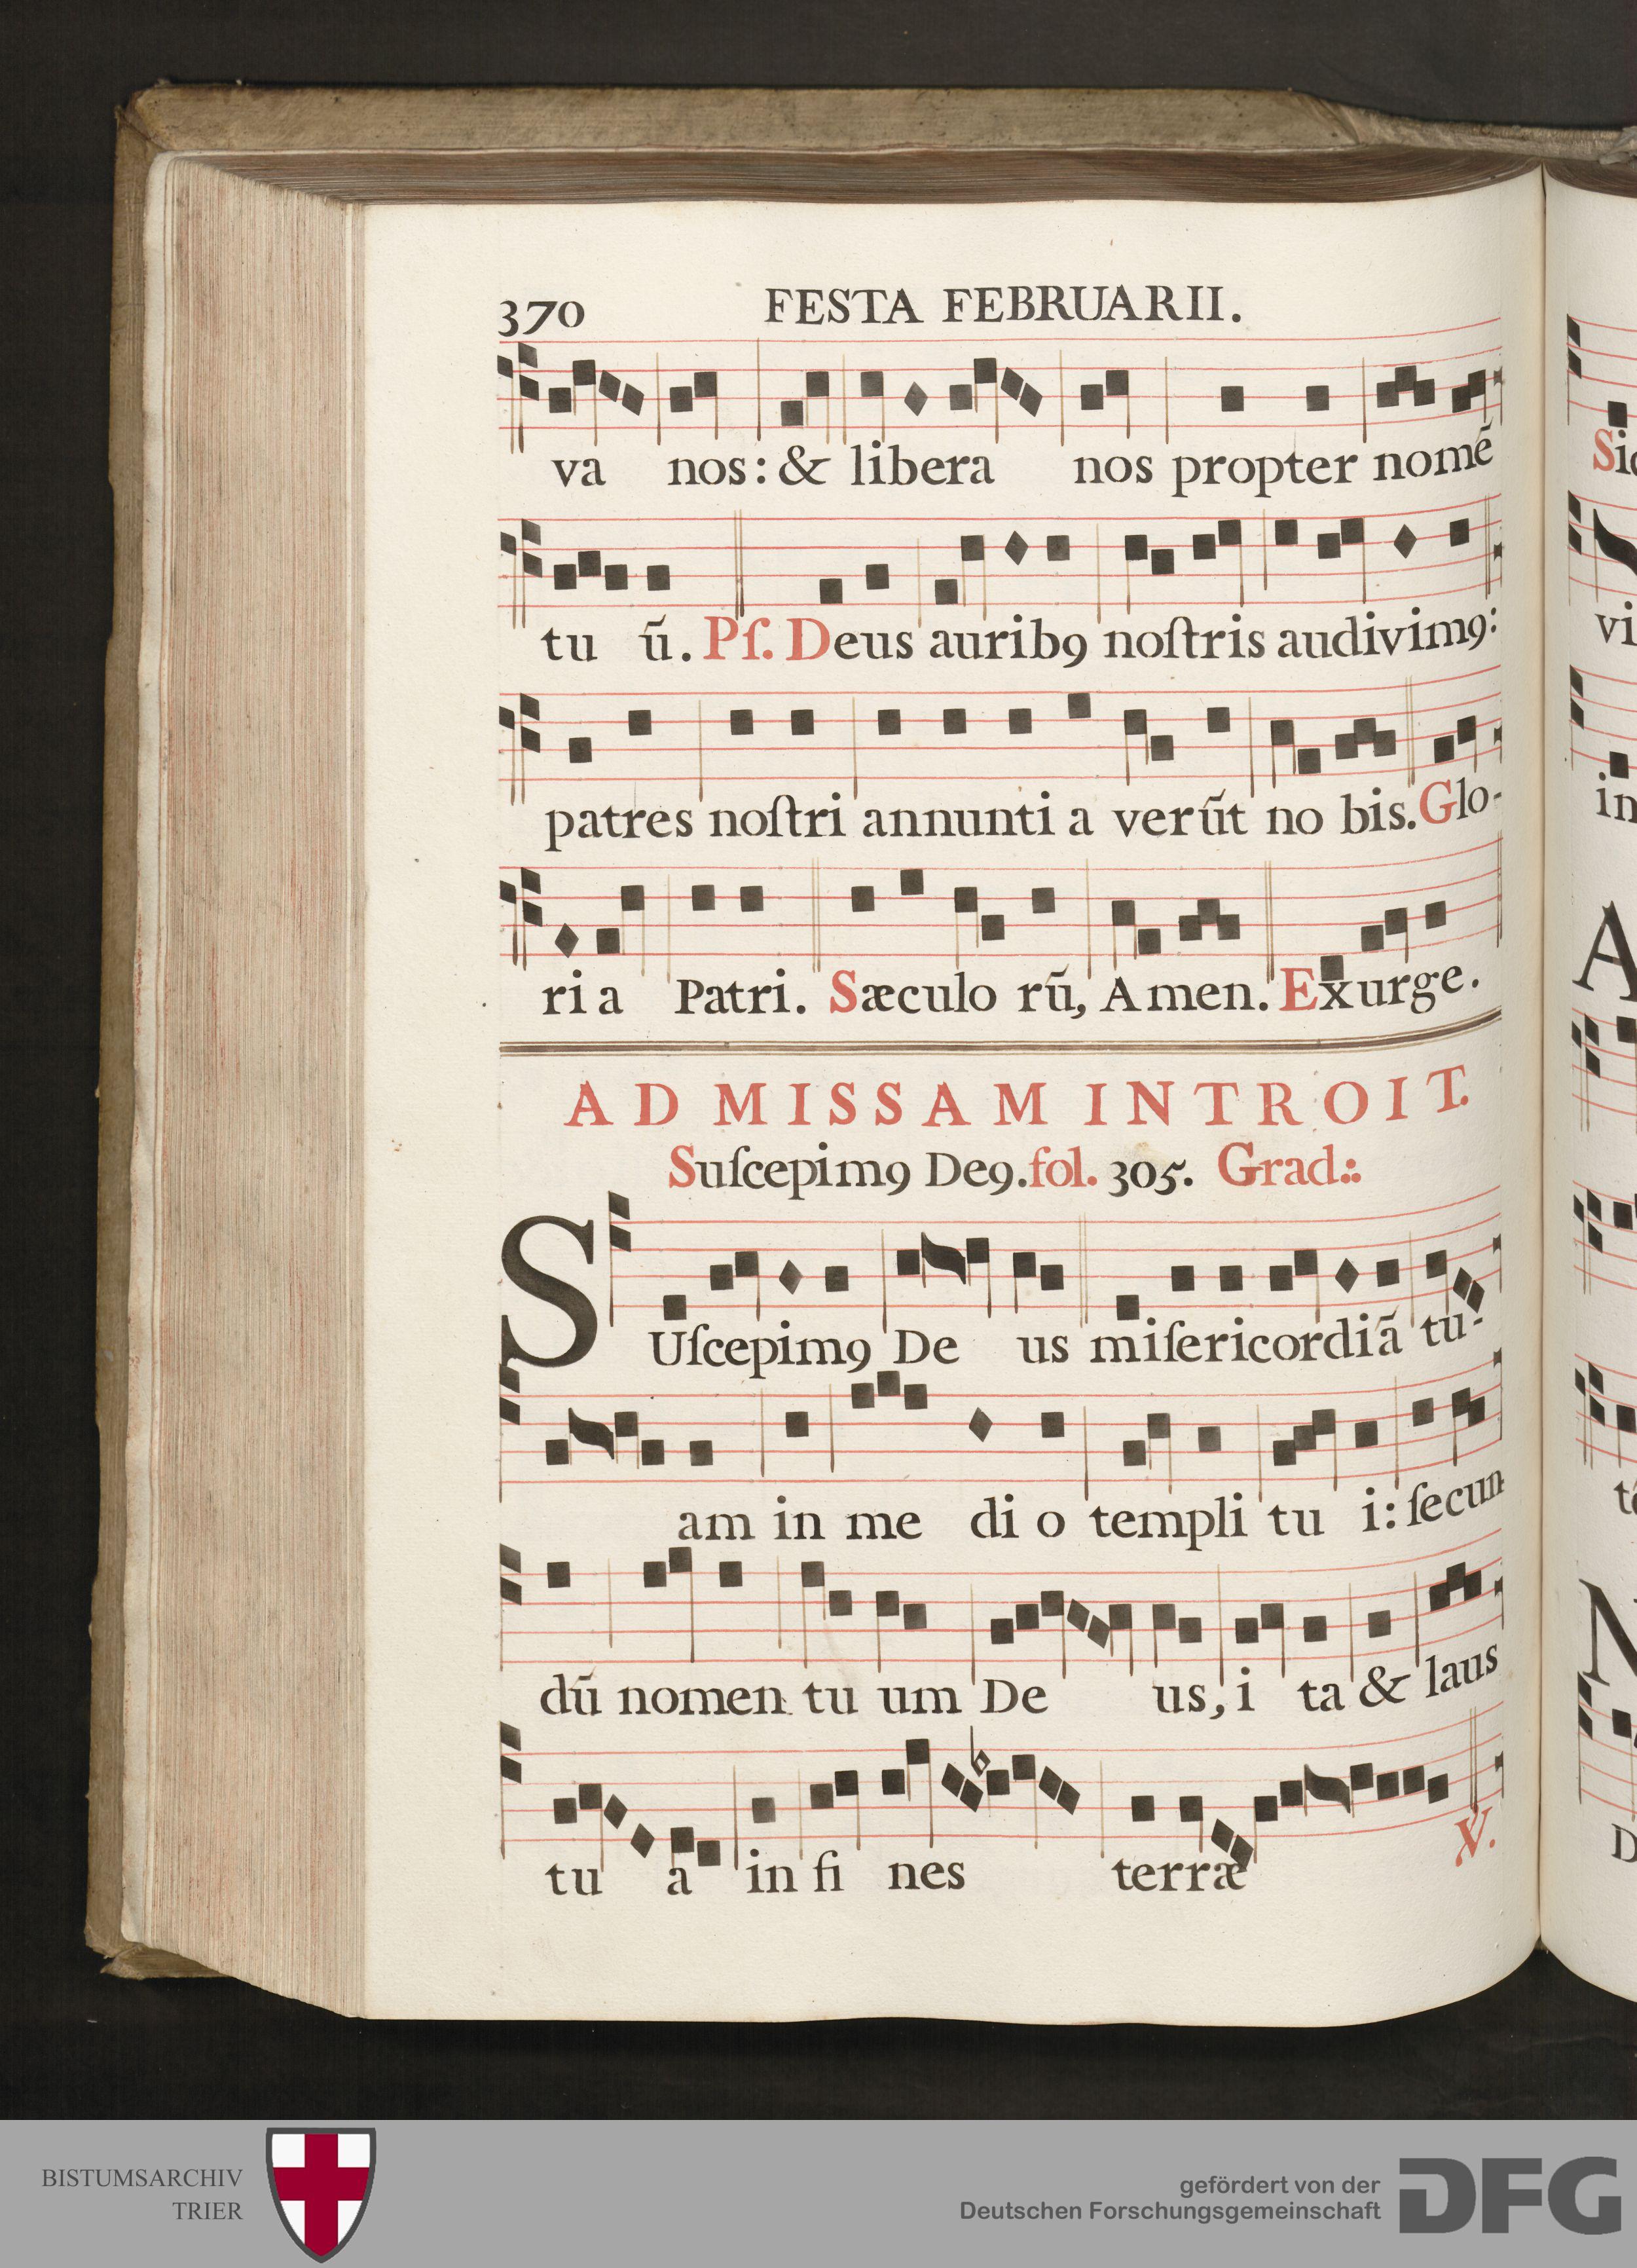 370 FESTA FEBRUARII.
va nos: & libera nos propter nomē
tu ū. Pſ. Deus auribꝯ noſtris audivimꝯ:
patres noſtri annunti a verūt no bis. Glo-
ri a Patri. Sæculo rū, Amen. Exurge.
AD MISSAM INTROIT.
Suſcepimꝯ Deꝯ. fol. 305. Grad.:
SUſcepimꝯ De us miſericordiā tu-
am in me di o templi tu i: ſecun-
dū nomen tu um De us, i ta & laus
tu a in fi nes terræ ℣.
BISTUMSARCHIV
TRIER
gefördert von der
Deutschen Forschungsgemeinschaft
DFG